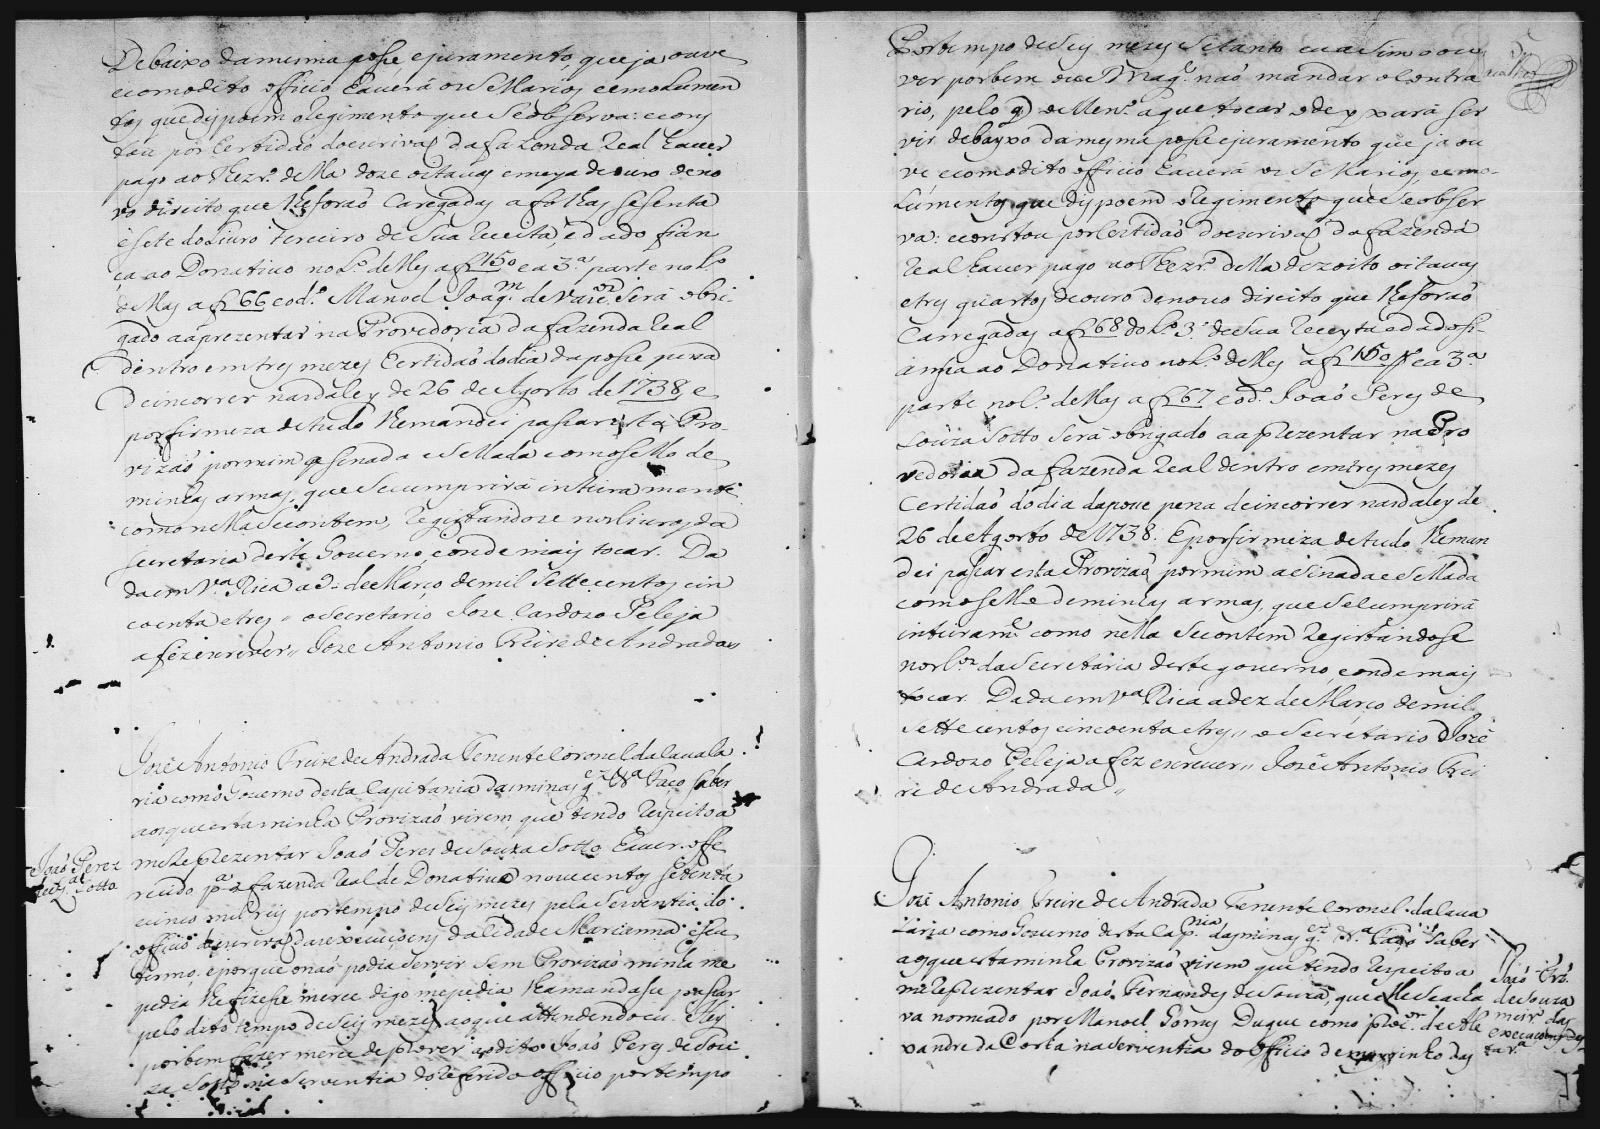 Debaixo damesma posse ejuramento, queja ouve
ecomodito officio havera os Marios, eemolumen
tos que dispoem o Regimento que Seobserva: econs
tou por Certidaõ doescrivaõ dafazenda Real haver
pago ao Thezr.º della doze oitavas emeya deouro deno
vo direito que lhe foraõ Caregadas afolhas sesenta
esete do Livro terceiro de Sua Receita, edado fian
ça ao Donativo no L.º delles af 150 ea 3.ª parte no L.º
dellas a f 66 eod.º Manoel Joaq.m de Será obri-
gado aaprezentar na Provedoria dafazenda Real
dentro emtres mezes Certidaõ dodia daposse pena
deincorrer nasdaley de 26 de Agosto de 1738, e
porfirmeza detudo lhemandei passar esta Pro-
vizaõ pormim asinada eSellada comoSello de
minhas armas, que Secumprirá inteiramente
como nella Secontem, Registandose nosLivros da
Secretaria deste Governo, eonde mais tocar. Da
da em V.ª Rica a 9 de Março demil Settecentos cin
coenta etres // o Secretario Joze Cardozo Peleja
a fez escrever // Joze Antonio Freire de Andrada //
Jozé Antonio Freire de Andrada Tenente Coronel da Cavala
ria como Governo desta Capitania das minas g.es &.ª Faço saber
aosque esta minha Provizaõ virem, que tendo Respeito a
meReprezentar Joaõ Peres de Souza Sotto haver offe
recido p.ª a fazenda Real de Donativo novecentos setenta
ecinco mil reis portempo deSeis mezes pela Serventia do
officio deescrivaõ das execuçoens da Cidade de Marianna eseu
termo, e porque onaõ podia Servir Sem Provizaõ minha me
pedia lhe fizese merce digo mepedia lhamandase passar
pelo dito tempo de Seis mezes ao que attendendo eu: Hey
porbem fazer merce deprover aodito Joaõ Perez de Sou
za Sotto na Serventia do Referido officio portempo
Joaõ Perez
de Sz.ª Sotto
Portempo deSeis mezes Setanto eu a Sim o ou
ver porbem ou S. Mag.e naõ mandar o Contra
rio, pelo q o de Men.º aque tocar o de p xará ser
vir debayxo damesma posse ejuramento que ja ou
ve ecomodito officio haverá os Sellarios, eemo-
lúmentos que dispoem o Regimento que Seobser
va: econstou porCertidaõ doescrivaõ dafazenda
Real haver pago ao Thezr.º della dezoito oitavas
etres quartos deouro denovo direito que lhe foraõ
Carregadas a f 68 do L.º 3.º de Sua Receyta edadofi-
ança ao Donativo no L.º delles a f 150 ea 3.ª
parte no L.º dellas a f 67 eod.º Joaõ Perez de
Souza Sotto Será obrigado aaprezentar na Pro
vedoria da fazenda Real dentro emtres mezes
Certidaõ do dia daposse pena deincorrer nasdaley de
26 de Agosto de 1738. E porfirmeza detudo lheman
dei passar esta Provizaõ pormim asinada eSellada
comoSello deminhas armas, que Secumprirá
inteiram.e como nella Secontem Registandose
nosL.os da Secretaria deste governo, eonde mais
tocar. Dada em V.ª Rica a dez de Março demil
Settecentos cincoenta etres // o Secretario Jozé
Cardozo Peleja a fez escrever // Jozé Antonio Frei
re de Andrada //
Jozé Antonio Freire de Andrada Tenente Coronel da Cava
laria como Governo desta Cap.nia das minas g.es &.ª Faço Saber
aosque esta minha Provizaõ virem que tendo Respeito a
meReprezentar Joaõ Fernandes de Souza, que Se acha
va nomeado por Manoel Gomes Duque como p.or de Ale
xandre da Costa na Serventia do officio de meirinho das
Joaõ Frz.
de Souza
meir.º das
execaçoens des
ta V.ª